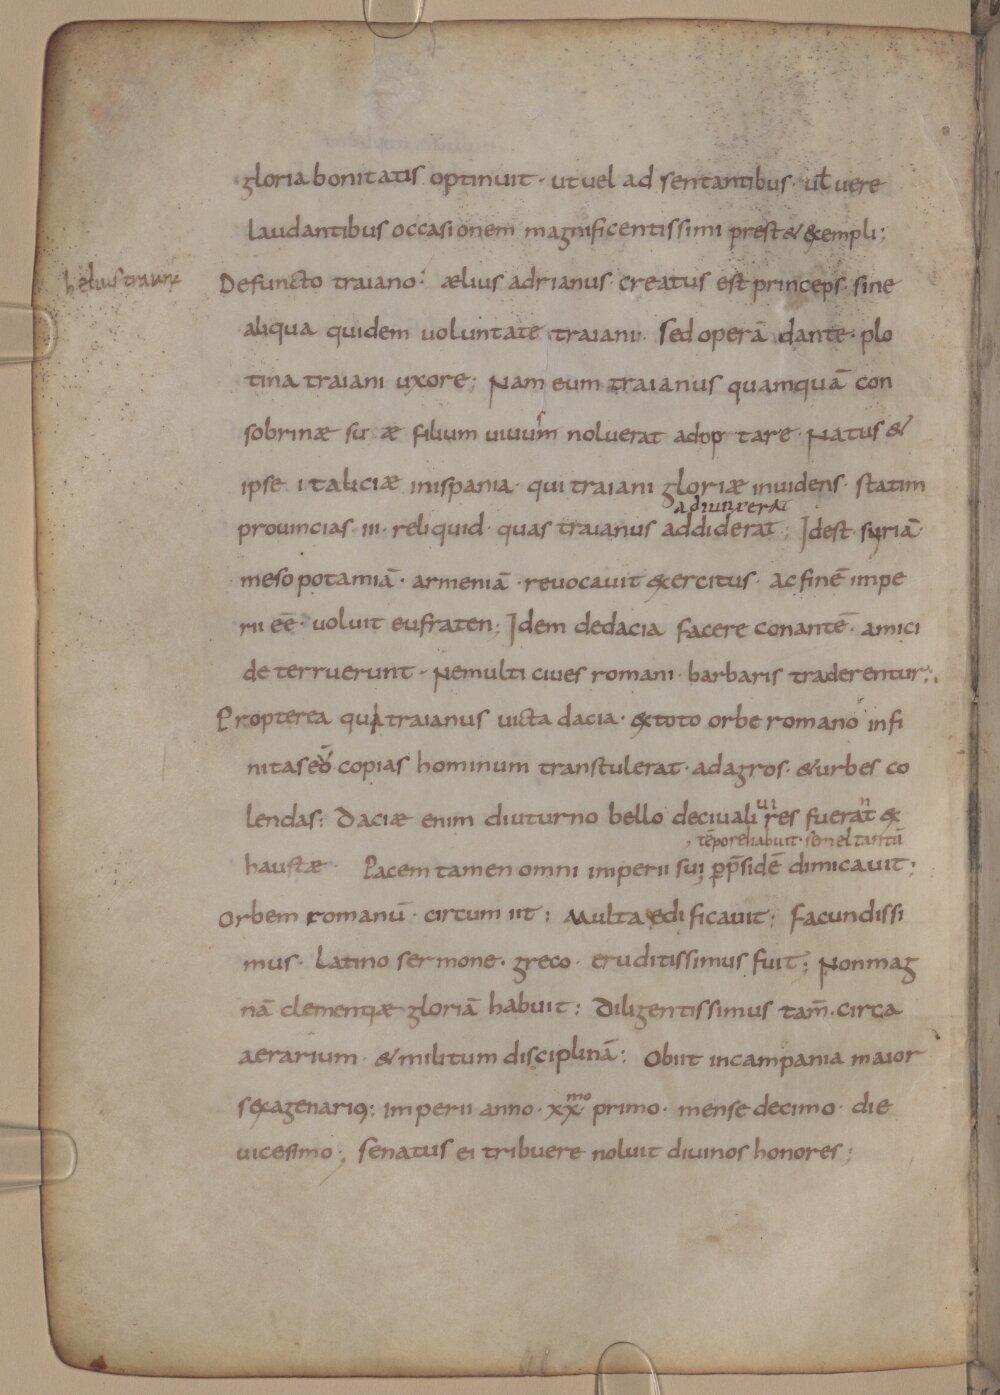 gloria bonitatis optinuit · ut uel ad sentantibus · ul̄ uere
laudantibus occasionem magnificentissimi prest& exempli;
Defuncto traiano: ælius adrianus creatus est princeps · sine
aliqua quidem uoluntate traiani · Sed operā dante · plo
tina traiani uxore; Nam eum traianus quamquā con
sobrinæ su æ filium uiuum noluerat adop tare · Natus &
ipse italiciæ inispania · qui traiani gloriæ inuidens · statim
adiunxerat
prouincias · iii · reliquid · quas traianus addiderat; Idest · syriā ·
mesopotamiā · armeniā · reuocauit exercitus · ac finē impe
rii eē · uoluit eufraten; Idem dedacia facere conantē · amici
de terruerunt · Nemulti ciues romani · barbaris traderentur;
Propterea quia traianus uicta dacia · ex toto orbe romano infi
nitas eō copias hominum transtulerat · ad agros · & urbes co
lendas: Daciæ enim diuturno bello deciuali uires fuerant ex
tēpore habuit · semel tantū
haustæ · Pacem tamen omni imperii sui p p̄sidē dimicauit;
Orbem romanū · circum iit; Multa edificauit; Facundissi
mus · Latino sermone · greco · eruditissimus fuit; Nonmag
nā clementiæ gloriā habuit; Diligentissimus tam̄ · circa
aerarium · & militum disciplinā: Obiit incampania maior
sexagenariꝰ; imperii anno · xx mo · primo · mense decimo · die
uicesimo; Senatus ei tribuere noluit diuinos honores;